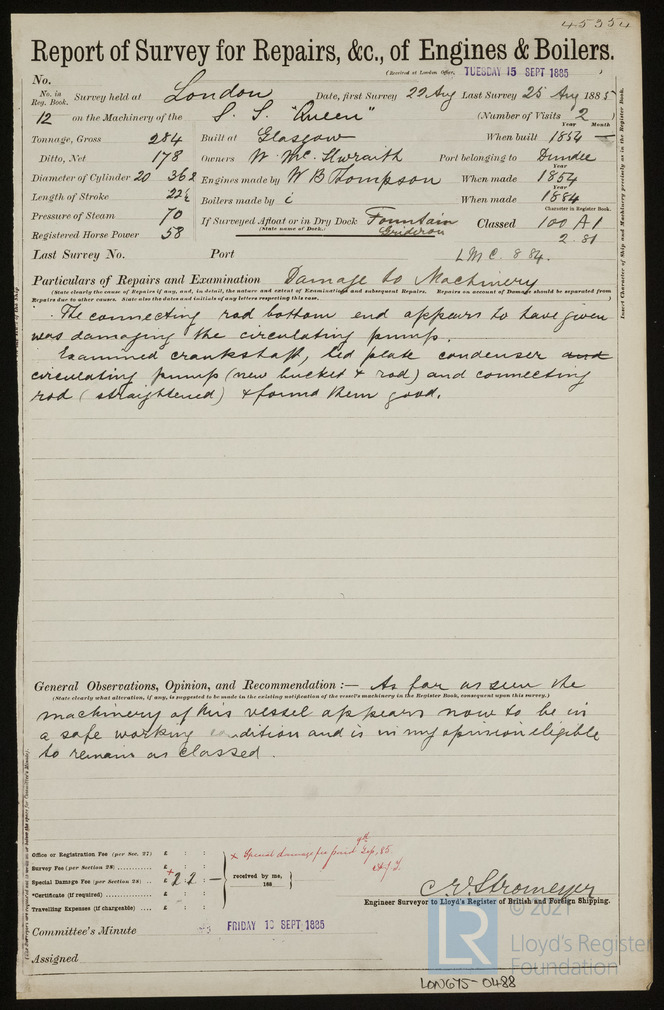 45354
Report of Survey for Repairs, &c., of Engines & Boilers.
(Received at London Office, TUESDAY 15 SEPT 1885 )
No.
No. in Reg. Book. Survey held at London Date, first Survey 22 Aug Last Survey 25 Aug 1885
12 on the Machinery of the S. S. "Queen" (Number of Visits 2 )
Year Month
Tonnage, Gross 284 Built at Glasgow When built 1854 —
Ditto, Net 178 Owners W. Mc. Ilwraith Port belonging to Dundee
Year
Diameter of Cylinder 20 36 Engines made by W B Thompson When made 1854
Year
Length of Stroke 22½ Boilers made by When made 1884
Character in Register Book.
Pressure of Steam 70 If Surveyed Afloat or in Dry Dock Fountain Classed 100 A1
(State name of Dock.) Gridiron 2.81
Registered Horse Power 58
Last Survey No. Port LMC. 8 84.
Particulars of Repairs and Examination Damage to Machinery
(State clearly the cause of Repairs if any, and, in detail, the nature and extent of Examinations and subsequent Repairs. Repairs on account of Damage should be separated from
Repairs due to other causes. State also the dates and initials of any letters respecting this case. )
The connecting rod bottom end appears to have given
was damaging the circulating pump.
Examined crankshaft, bed plate condenser and
circulating pump (new bucket & rod) and connecting
rod (straightened) & found them good.
Insert Character of Ship and Machinery precisely as in the Register Book.
General Observations, Opinion, and Recommendation :— As far as seen the
(State clearly what alteration, if any, is suggested to be made in the existing notification of the vessel's machinery in the Register Book, consequent upon this survey.)
machinery of this vessel appears now to be in
a safe working condition and is in my opinion eligible
to remain as classed.
Office or Registration Fee (per Sec. 27) £ : :
Survey Fee (per Section 28) £ : :
Special Damage Fee (per Section 28) £ 2 2 —
*Certificate (if required) £ : :
Travelling Expenses (if chargeable) £ : :
x Special damage fee 9th Sep, 85
received by me,
188
C. E. Stromeyer
Engineer Surveyor to Lloyd's Register of British and Foreign Shipping.
Committee's Minute FRIDAY 18 SEPT 1885
Assigned
© 2021
LR
Lloyd's Register
Foundation
LON675-0488